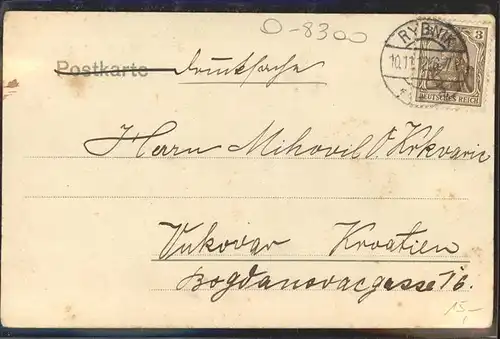 O-8300
RYBNIK
3
10.11.
DEUTSCHES REICH
Postkarte Drucksache
Herrn Mihovil
Vukovar Kroatien
Bogdanovacgasse 16.
15,-